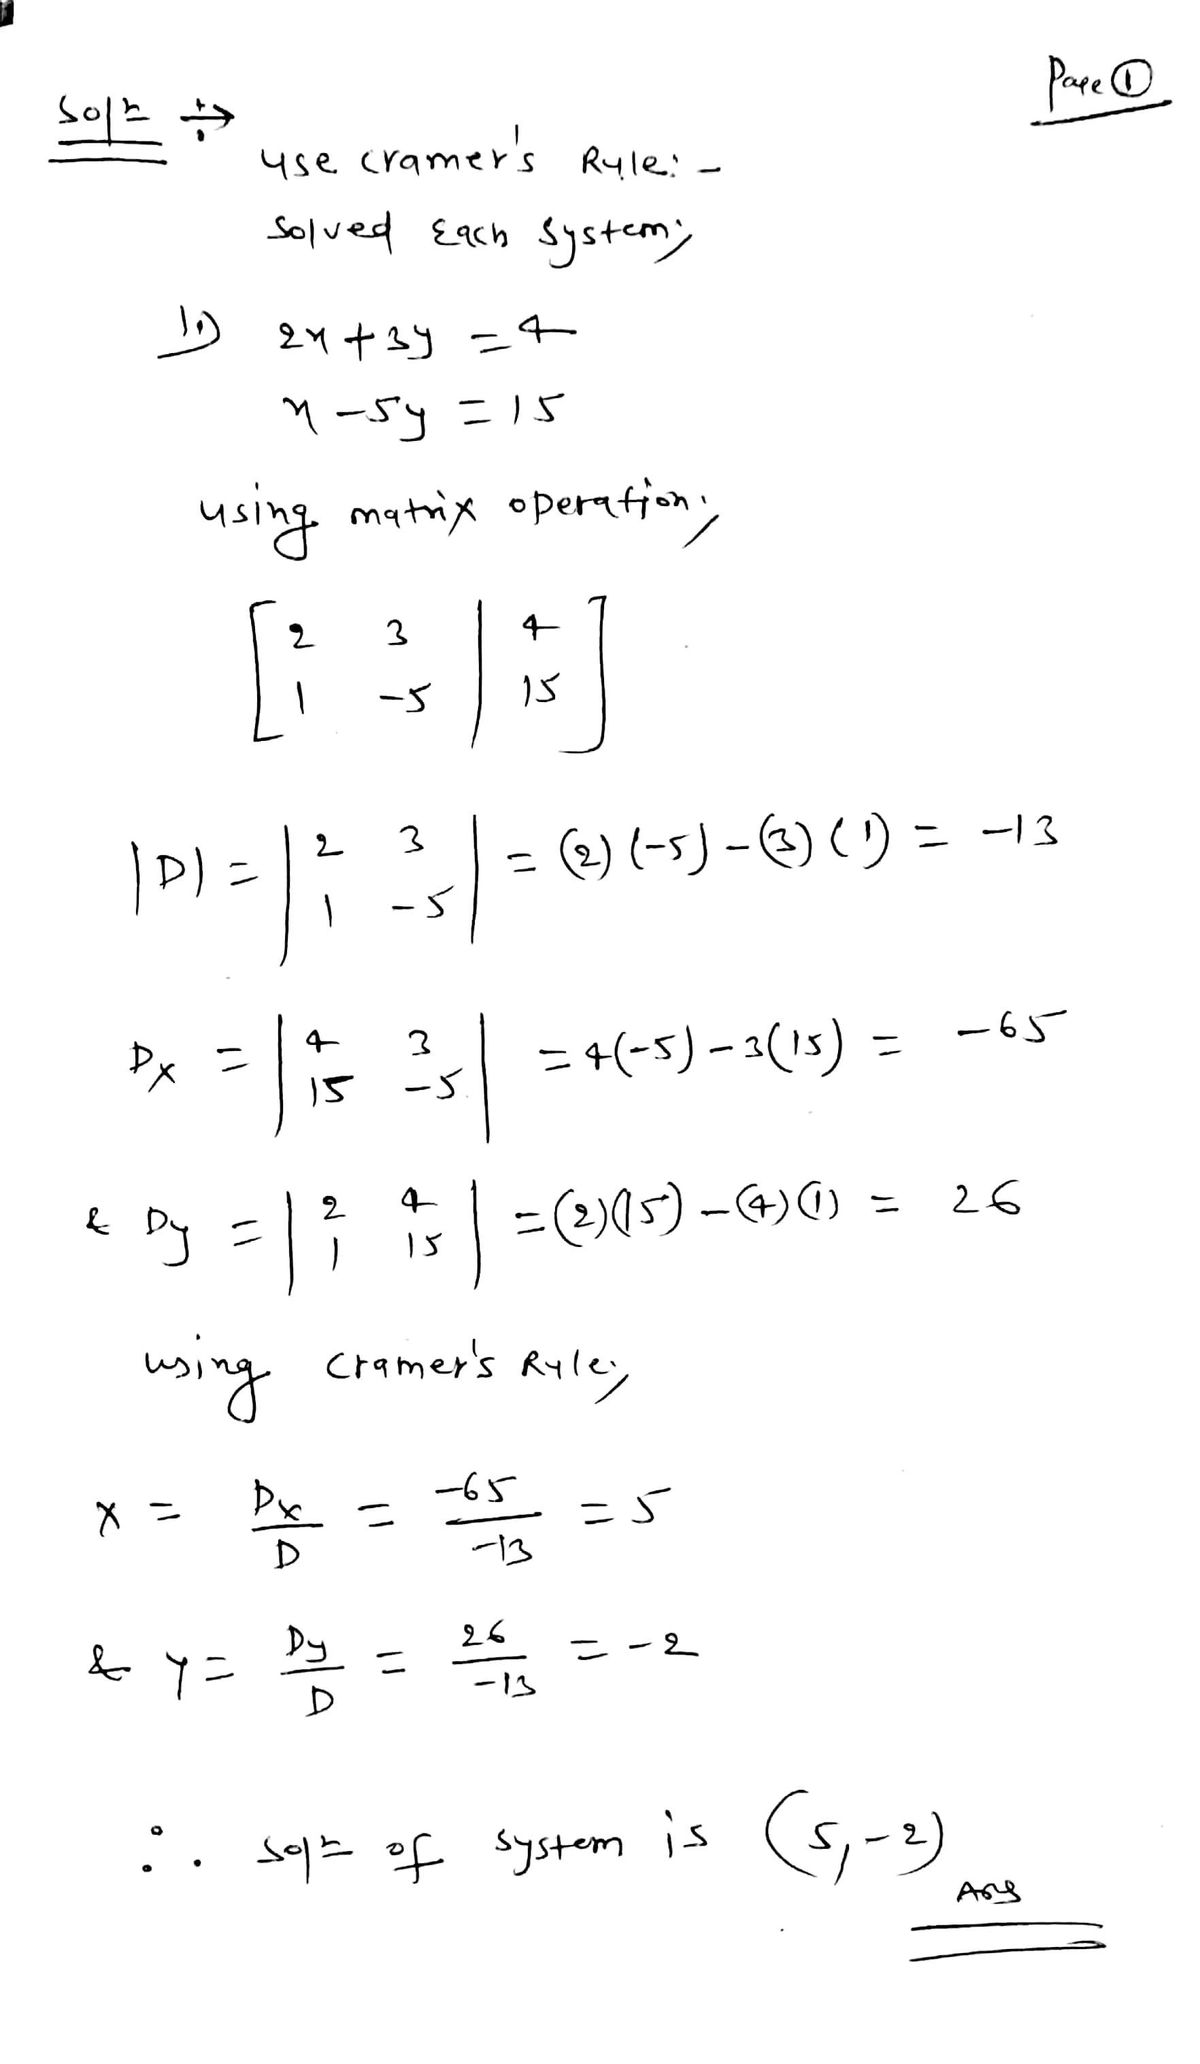 Page ①
Solⁿ ÷→
Use cramer's Rule:-
Solved Each system;
1.) 2x + 3y = 4
x - 5y = 15
using matrix operation;
[ 2 3 | 4 ]
[ 1 -5 | 15 ]
|D| = | 2 3 | = (2)(-5) - (3)(1) = -13
| 1 -5 |
Dx = | 4 3 | = 4(-5) - 3(15) = -65
| 15 -5 |
& Dy = | 2 4 | = (2)(15) - (4)(1) = 26
| 1 15 |
using cramer's Rule;
x = Dx/D = -65/-13 = 5
& y = Dy/D = 26/-13 = -2
∴ solⁿ of system is (5, -2)
Ans